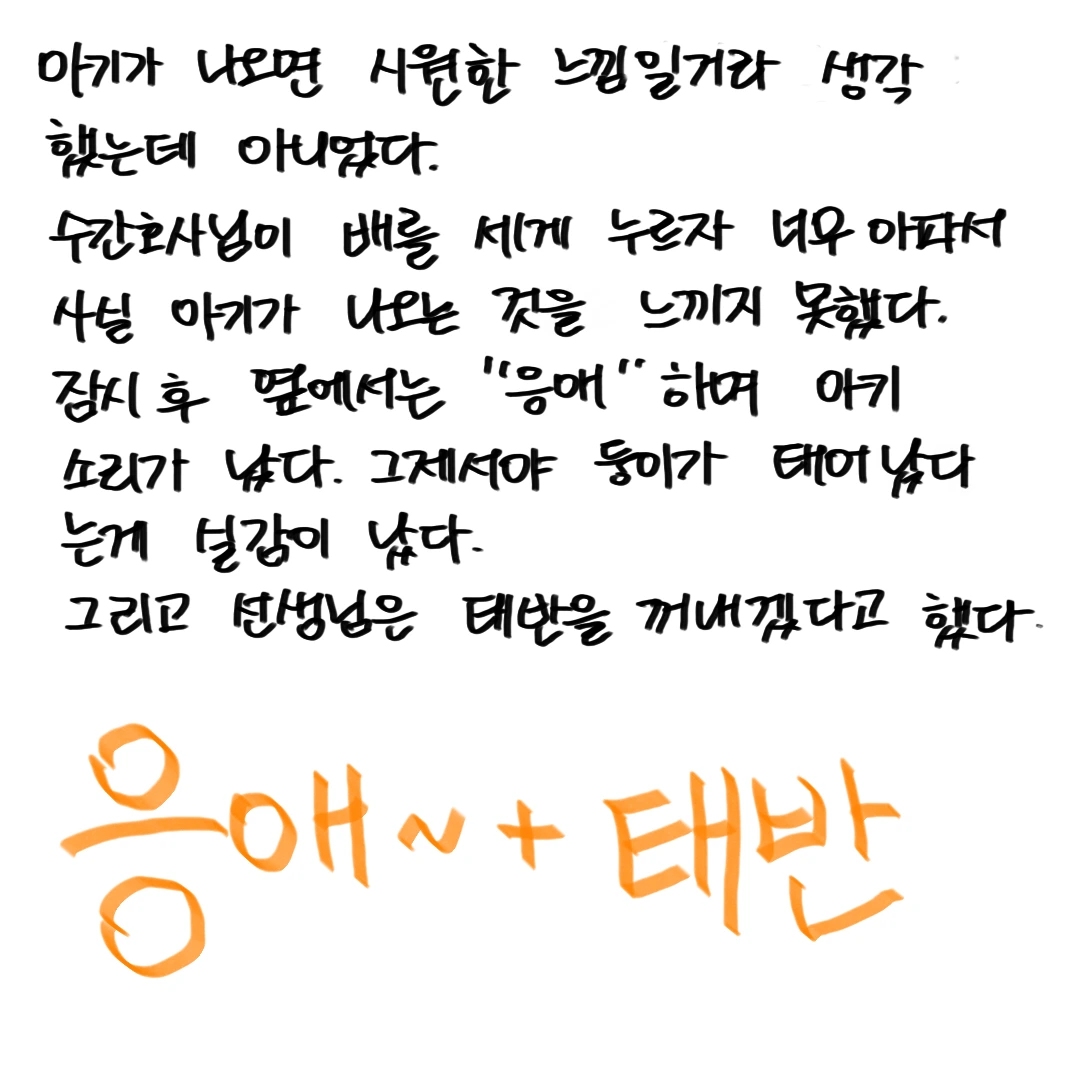 아기가 나오면 시원한 느낌일거라 생각
했는데 아니었다.
수간호사님이 배를 세게 누르자 너무 아파서
사실 아기가 나오는 것을 느끼지 못했다.
잠시 후 옆에서는 "응애" 하며 아기
소리가 났다. 그제서야 둥이가 태어났다
는게 실감이 났다.
그리고 선생님은 태반을 꺼내겠다고 했다.
응애~ + 태반